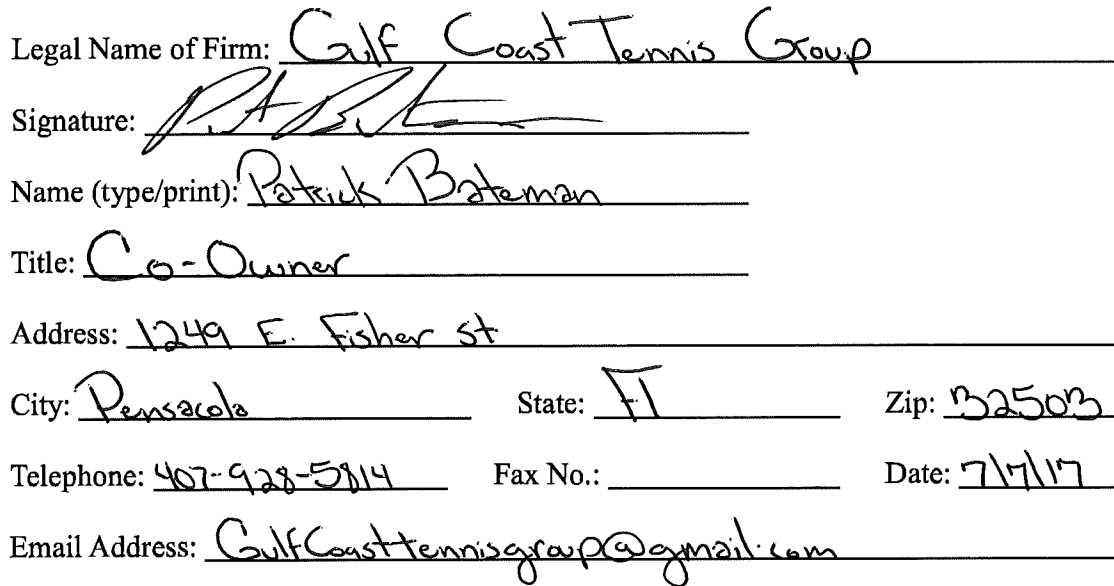 Legal Name of Firm: Gulf Coast Tennis Group
Signature:
Name (type/print): Patrick Bateman
Title: Co-Owner
Address: 1249 E. Fisher st
City: Pensacola State: Fl Zip: 32503
Telephone: 407-928-5814 Fax No.: Date: 7/7/17
Email Address: GulfCoasttennisgroup@gmail.com